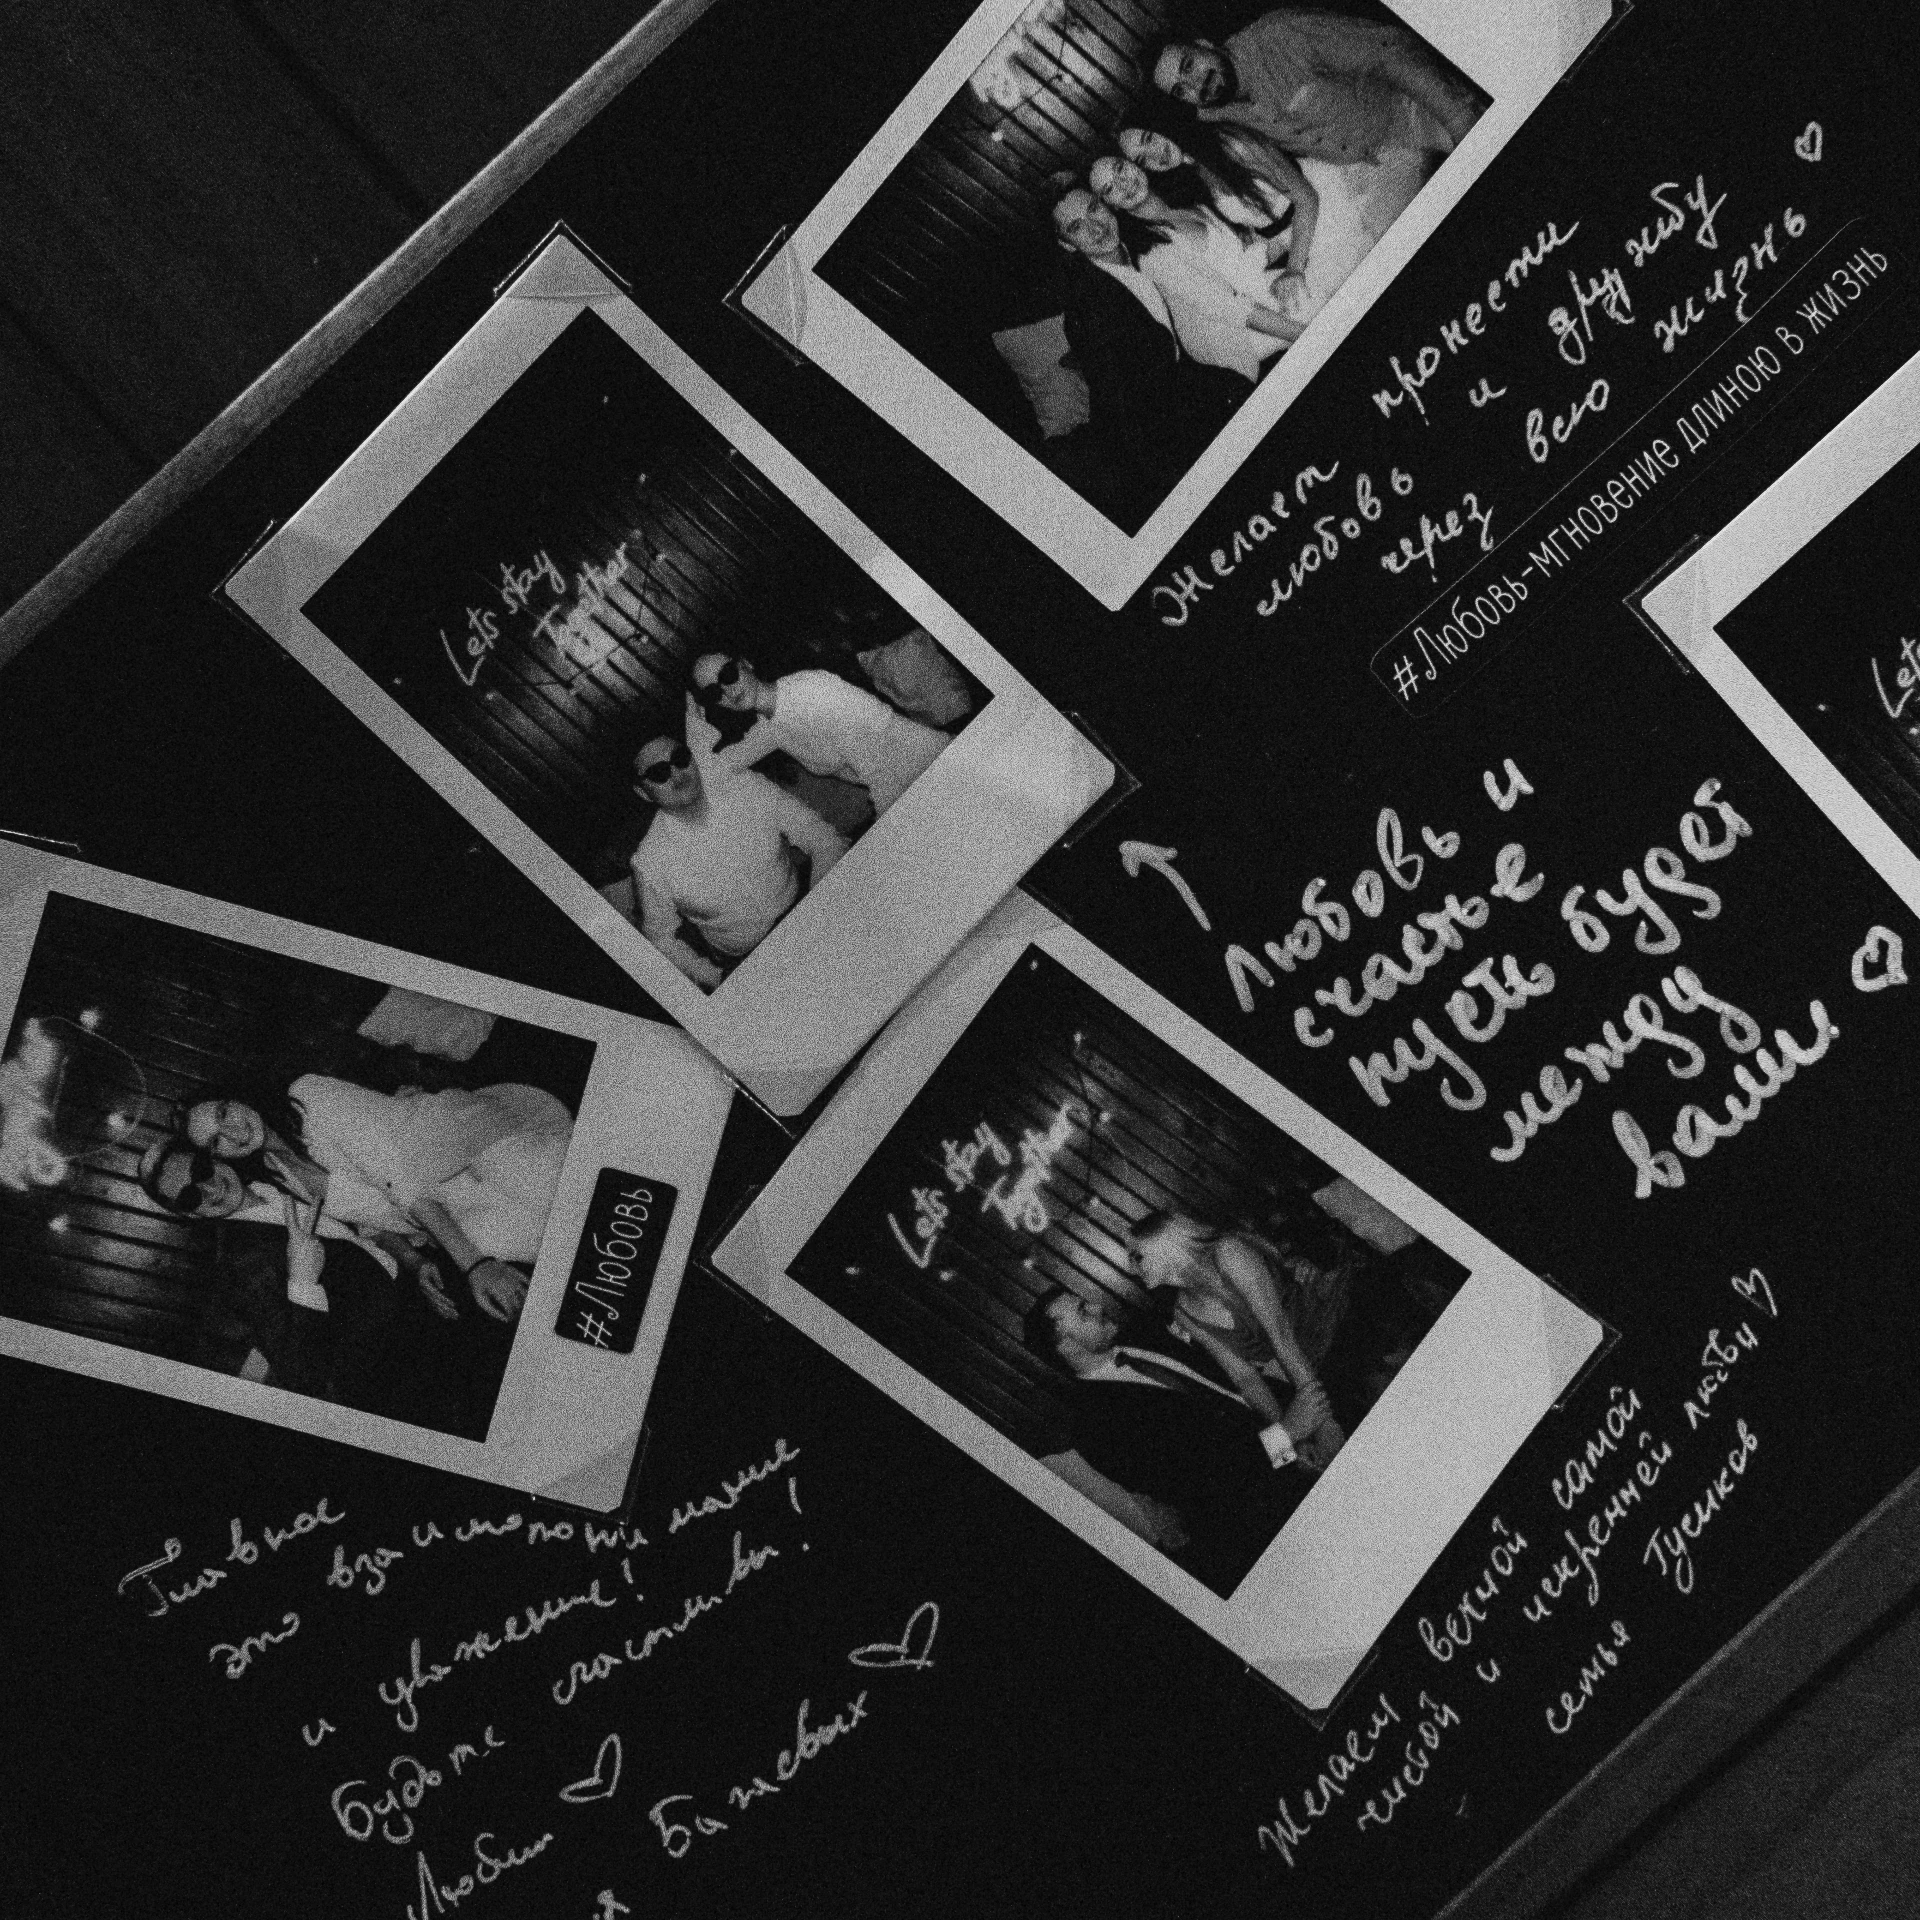 Желаем пронести
любовь и дружбу
через всю жизнь
#Любовь-мгновение длиною в жизнь
Lets stay
Together
Lets
Любовь и
счастье
пусть будет
между
вами.
#Любовь
Lets stay
Together
Главное
это взаимопонимание
и уважение!
Будьте счастливы!
Любим
Бажевых
я
Желаем вечной самой
чистой и искренней любви
семья Гусиков